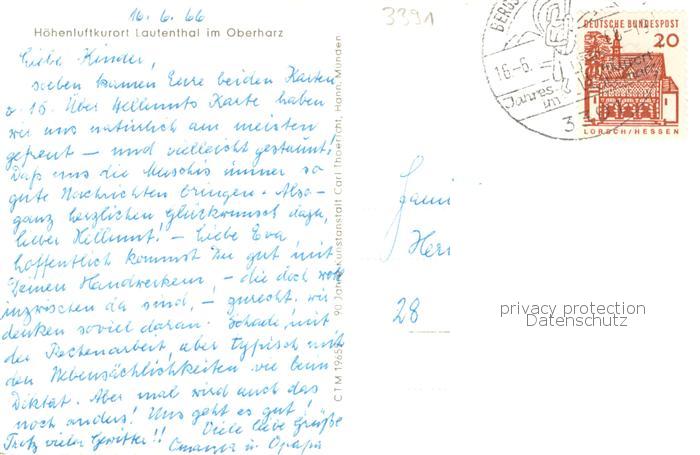 16.6.66
3391
Höhenluftkurort Lautenthal im Oberharz
Liebe Kinder,
soeben kamen Eure beiden Karten
v. 15. Über Hellmuts Karte haben
wir uns natürlich am meisten
gefreut – und vielleicht gestaunt!
Daß uns die Maschis immer so
gute Nachrichten bringen. Also –
ganz herzlichen Glückwunsch dazu,
lieber Hellmut! – Liebe Eva,
hoffentlich kommst Du gut mit
Deinen Handwerkern, – die doch wohl
inzwischen da sind, – zurecht. Wir
denken soviel daran. Schade, mit
der Rechenarbeit, aber typisch mit
den Nebensächlichkeiten wie beim
Diktat. Aber mal wird auch das
noch anders! Uns geht es gut!
Trotz vieler Gewitter!! Viele liebe Grüße
Omama u. Opapa
CTM 1965 90 Jahre Kunstanstalt Carl Thoericht, Hann. Münden
BERGS
16.-6.
Jahres-
im
33
DEUTSCHE BUNDESPOST
20
LORSCH/HESSEN
Fami
Herr
28
privacy protection
Datenschutz